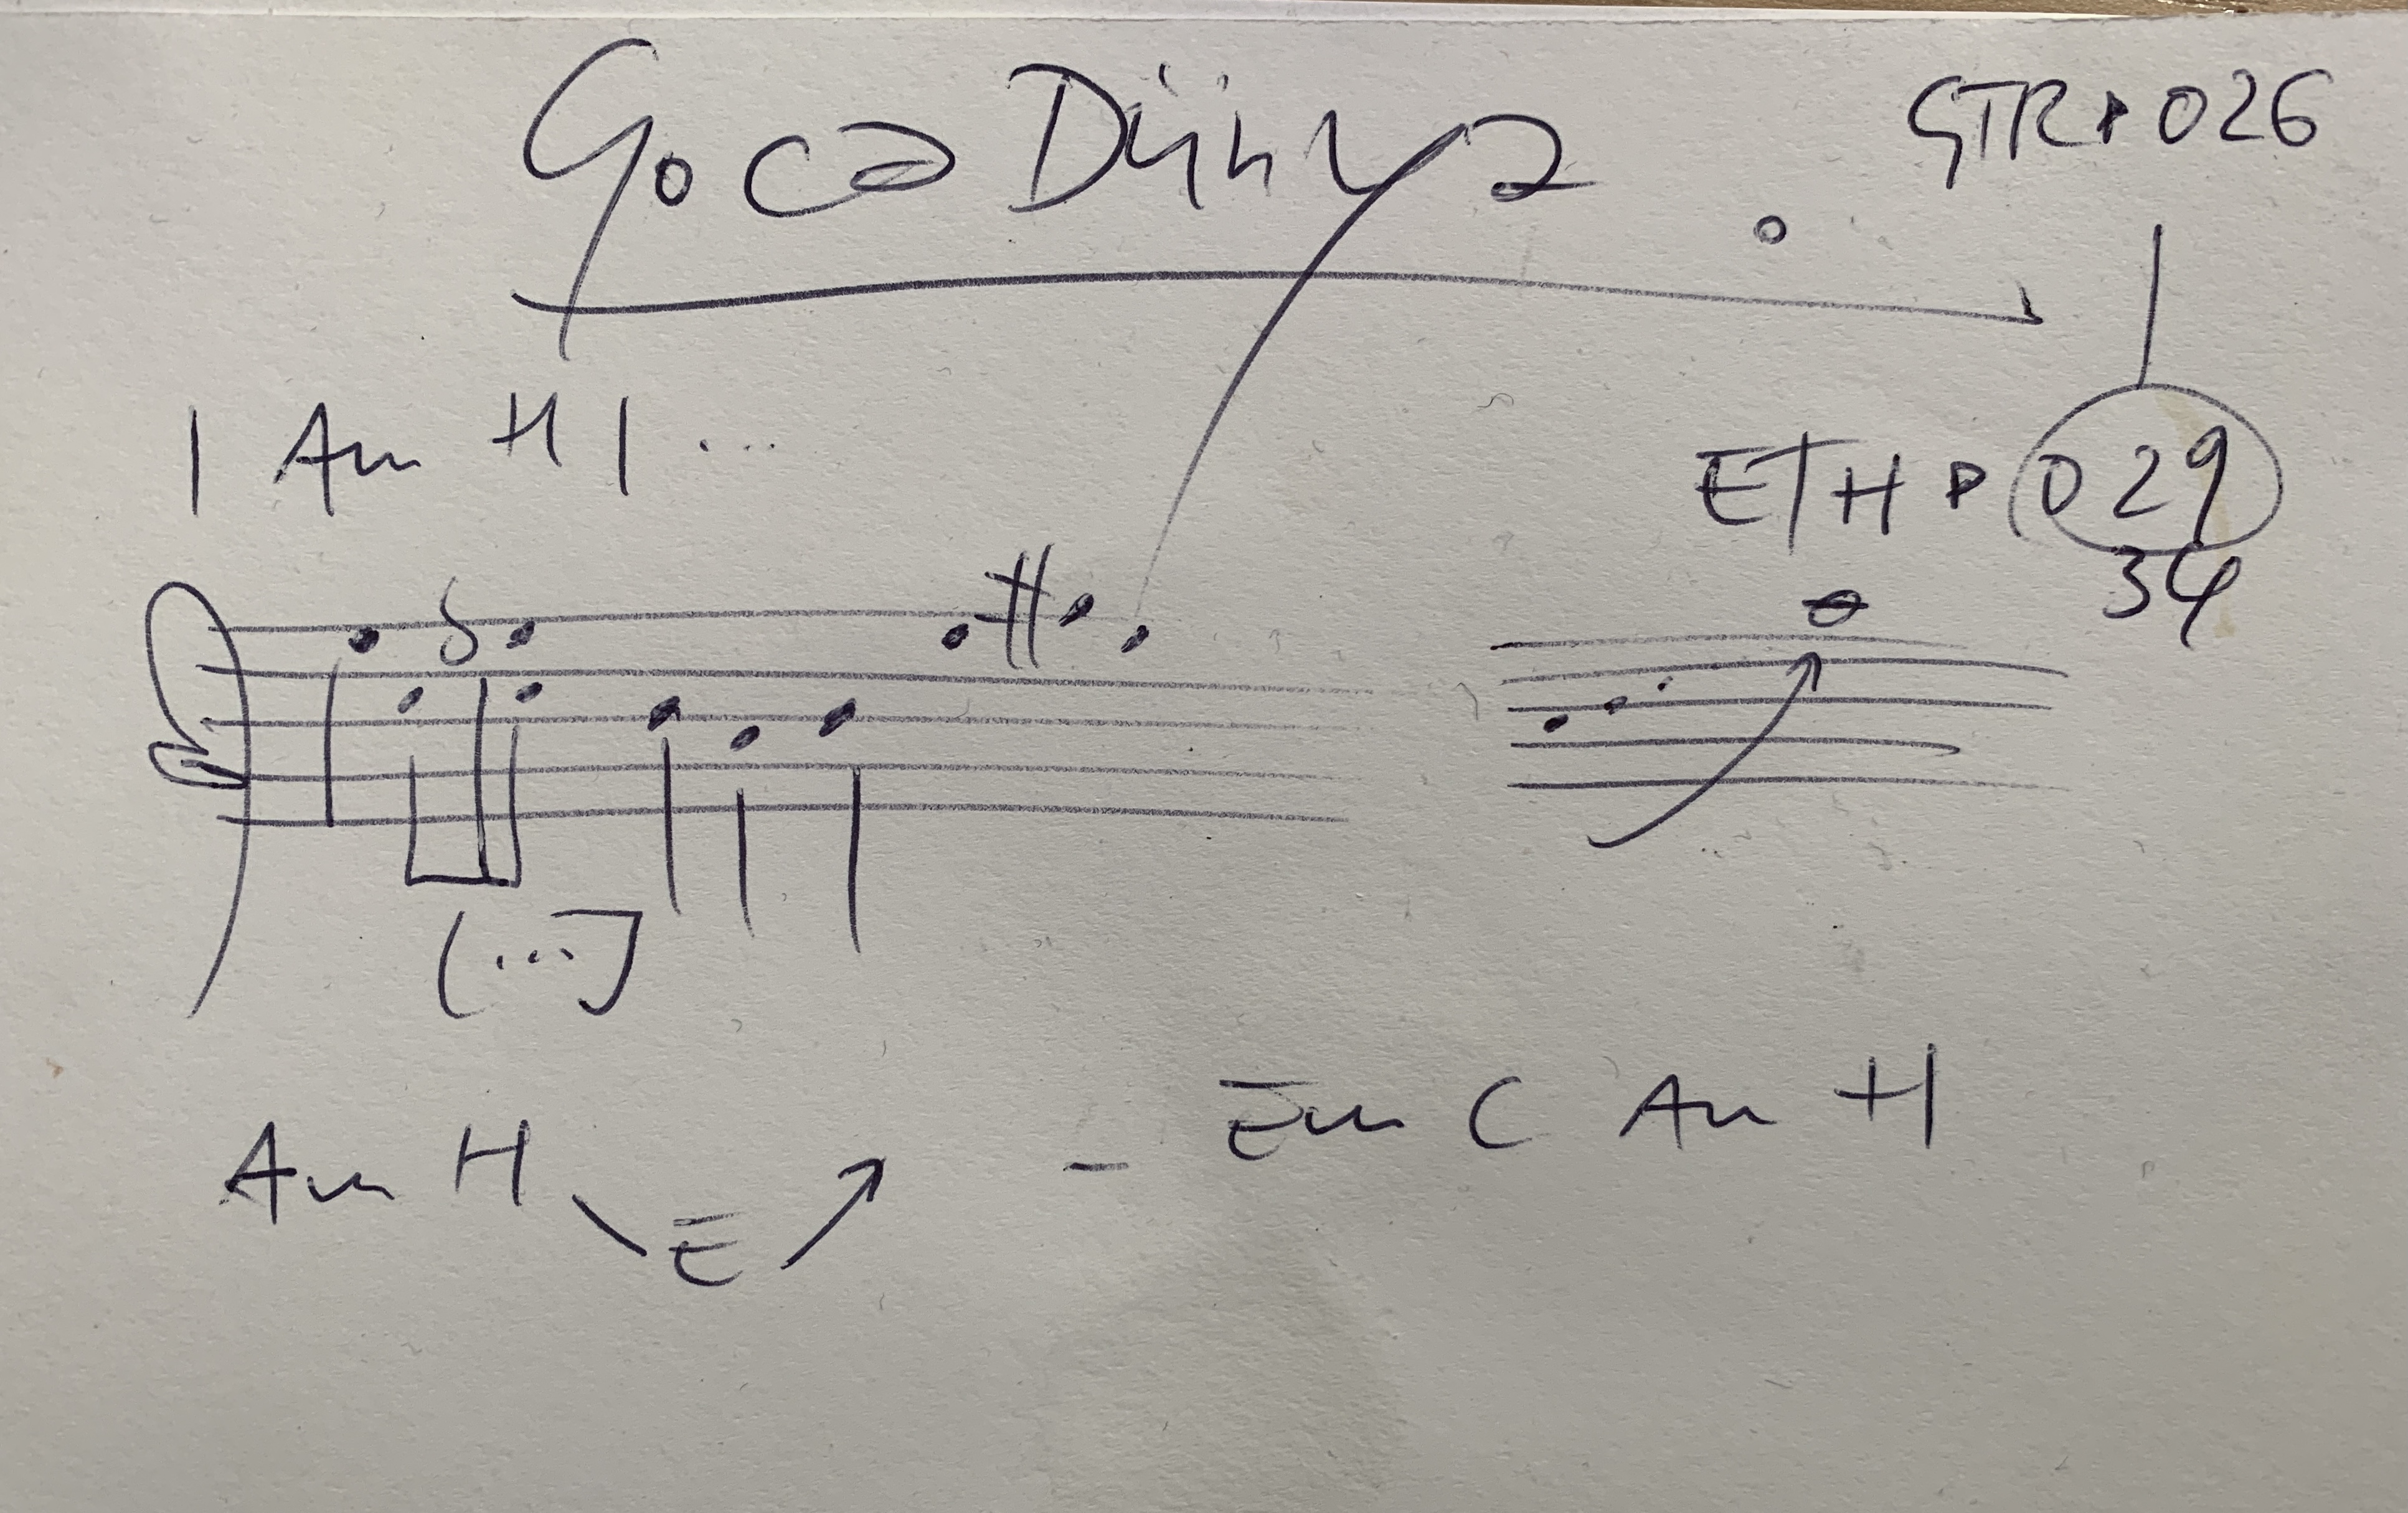 Goca Dünya
GTR 026
| Am H | ...
ETH 029
34
(...)
Am H E - Em C Am H